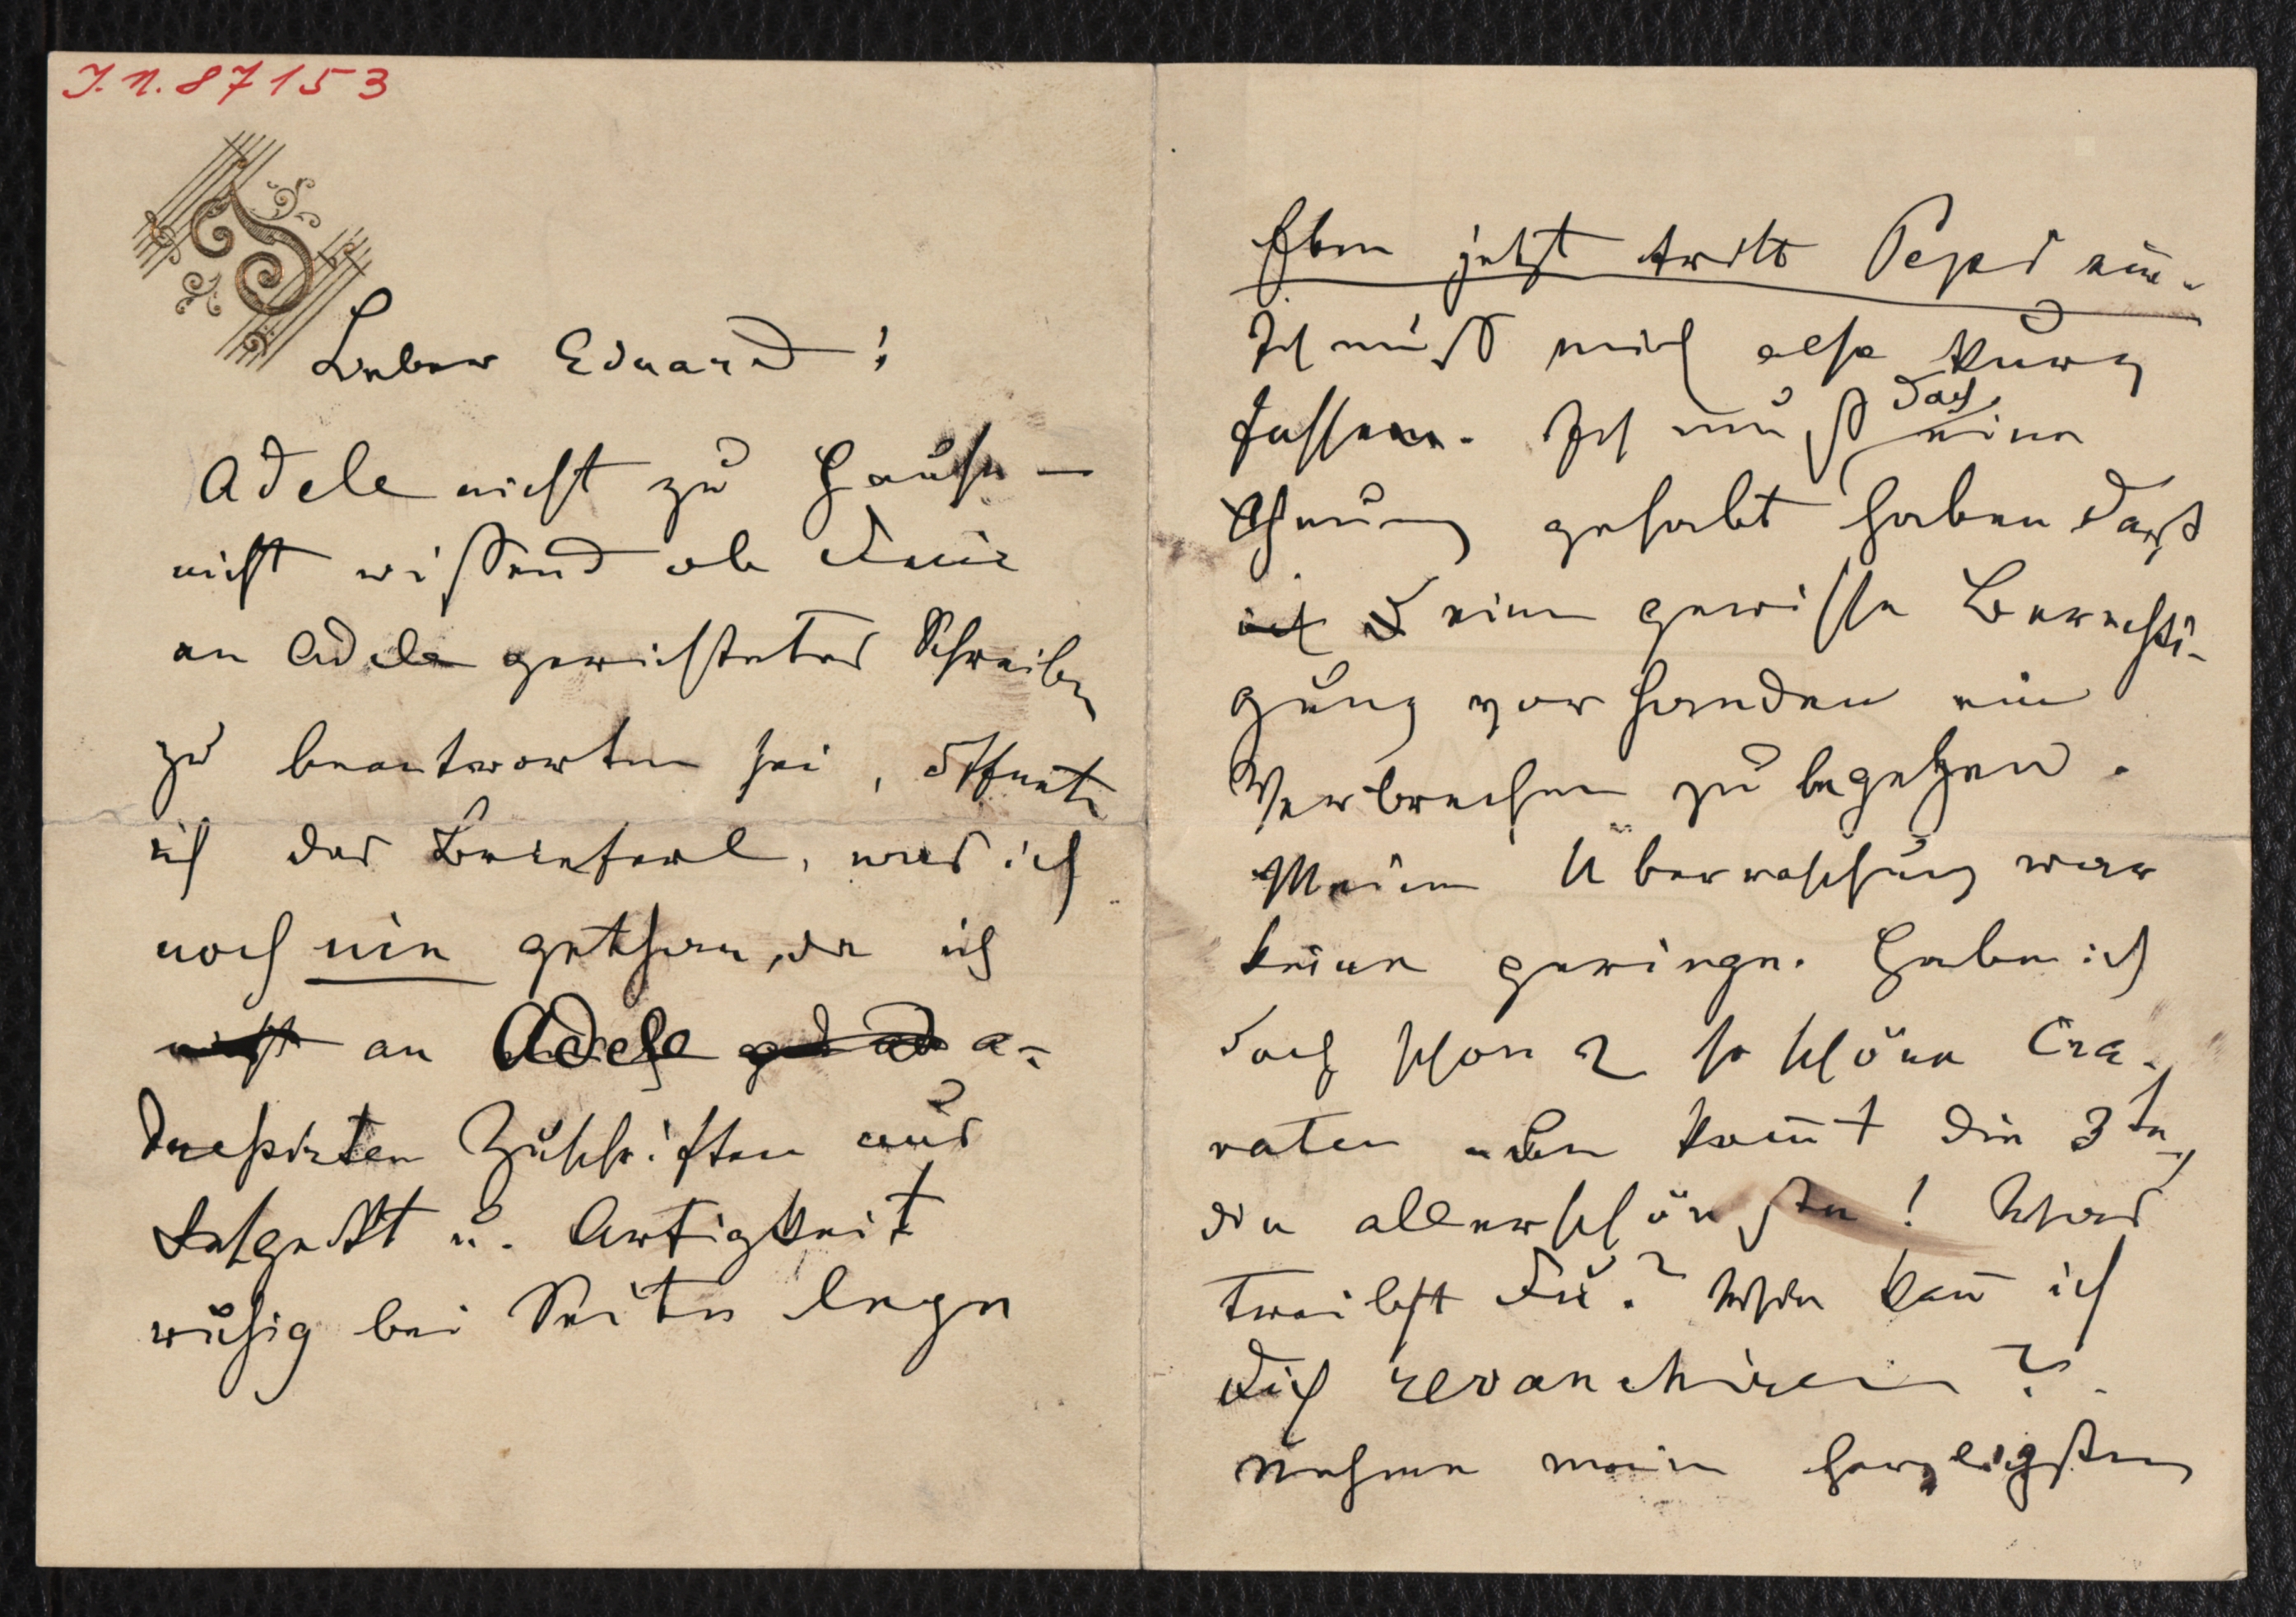 I.N. 87153
Lieber Eduard!
Adele nicht zu Hause –
nicht wissend ob Dein
an Adele gerichtetes Schreiben
zu beantworten sei, öffnete
ich das Brieferl, was ich
noch nie gethan, da ich
nicht an Adele a-
dressirten Zuschriften aus
Respekt u. Artigkeit
ruhig bei Seite lege
Eben jetzt tritt Pepi ein.
Ich muß mich also kurz
fassen. Ich muß doch eine
Ahnung gehabt haben daß
ich eine gewisse Berechti-
gung vorhanden ein
Verbrechen zu begehen.
Meine Überraschung war
keine geringe. Habe ich
doch schon 2 so schöne Cra-
vaten kom̄t die 3te,
die allerschönste! Was
treibst Du? Wie kan̄ ich
Dich revanchiren?
Nehme meine herzligsten